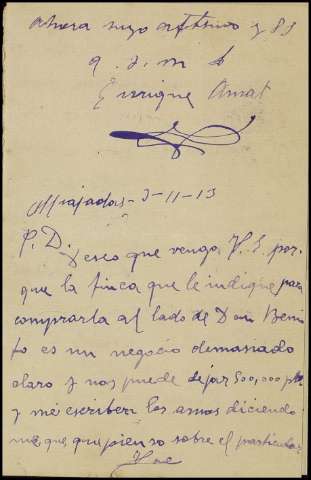 ahora suyo afftmo y SS
q. s. m. b
Enrique Amat
Miajadas - 3-11-13
P. D.
Deseo que venga V. E. por-
que la finca que le indique para
comprarla al lado de Don Beni
to es un negocio demasiado
claro y nos puede dejar 500,000 pts
y me escriben los amos diciendo
me que que pienso sobre el particular
Vae